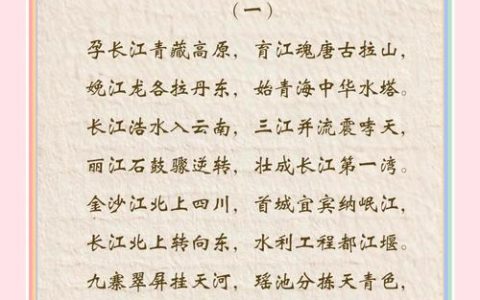 （一）
孕长江青藏高原，育江魂唐古拉山，
娩江龙各拉丹东，始青海中华水塔。
长江浩水入云南，三江并流震哮天，
丽江石鼓骤逆转，壮成长江第一湾。
金沙江北上四川，首城宜宾纳岷江，
长江北上转向东，水利工程都江堰。
九寨翠屏挂天河，瑶池分拣天青色，